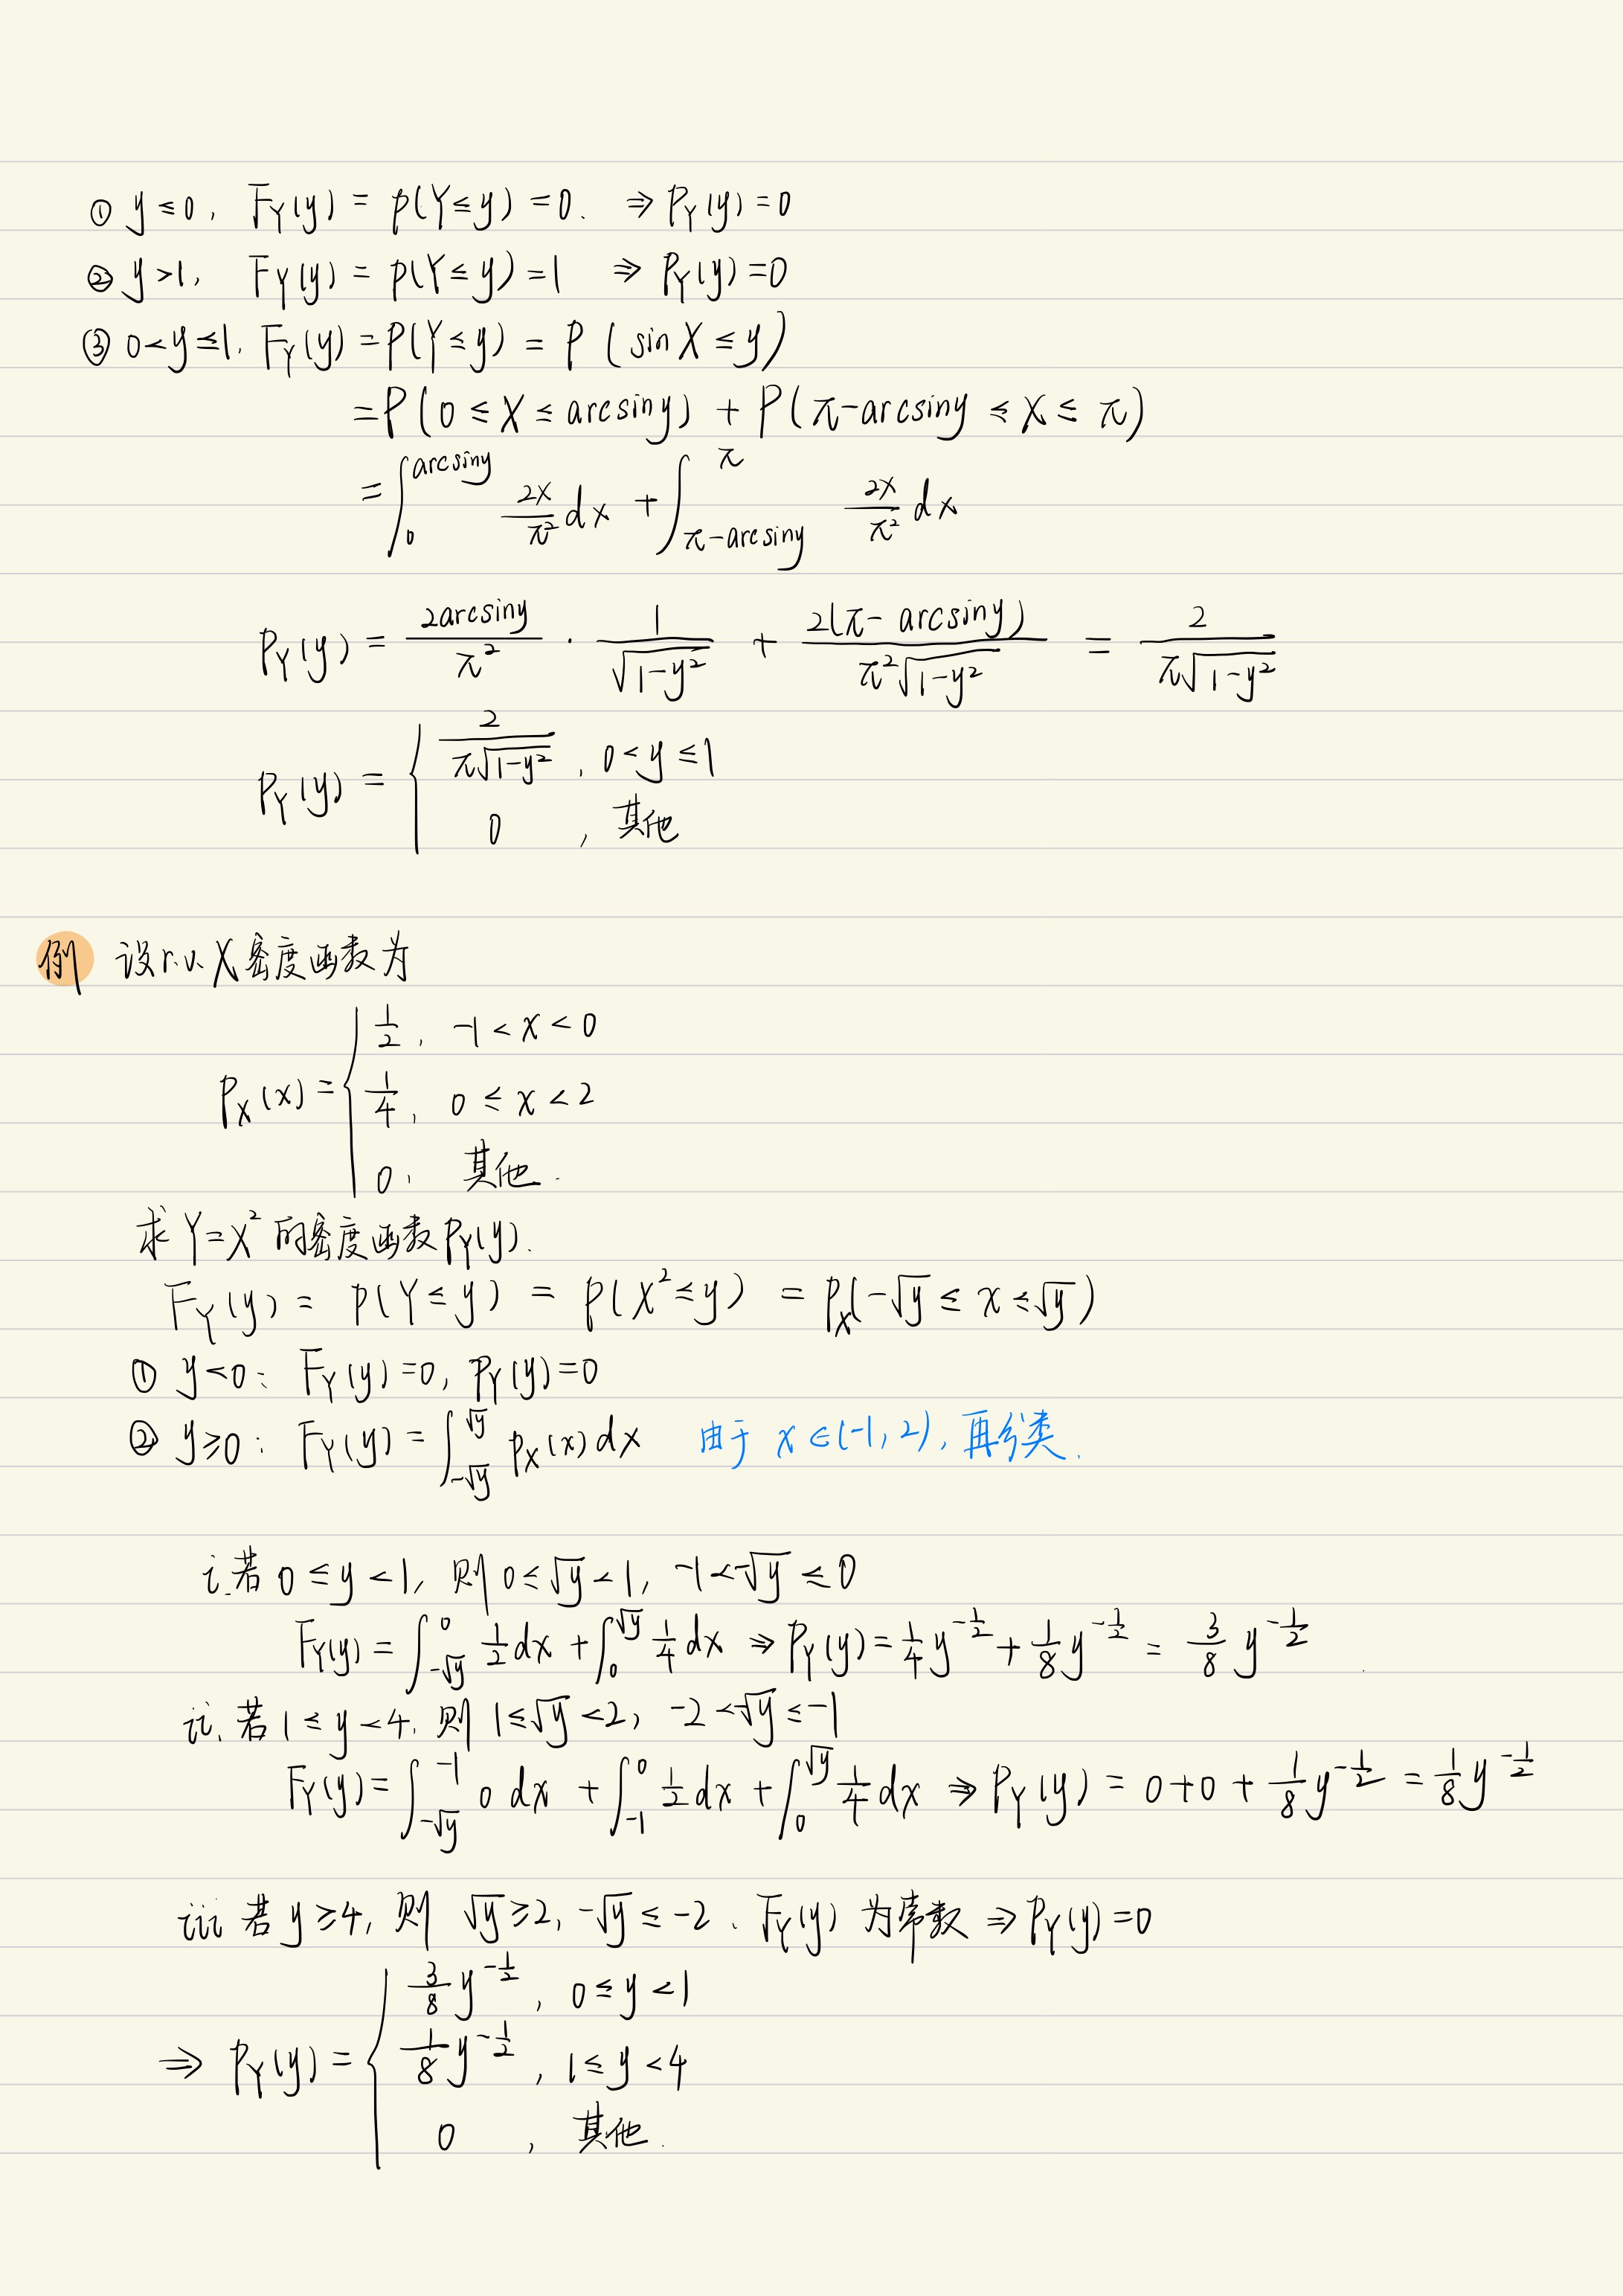 ① y≤0, F_Y(y) = p(Y≤y) = 0. ⇒ P_Y(y)=0
② y>1, F_Y(y) = p(Y≤y) = 1 ⇒ P_Y(y)=0
③ 0<y≤1, F_Y(y) = P(Y≤y) = P(sinX≤y)
= P(0≤X≤arcsiny) + P(π-arcsiny≤X≤π)
= ∫_0^{arcsiny} 2x/π² dx + ∫_{π-arcsiny}^{π} 2x/π² dx
P_Y(y) = 2arcsiny/π² · 1/√(1-y²) + 2(π-arcsiny)/(π²√(1-y²)) = 2/(π√(1-y²))
P_Y(y) = { 2/(π√(1-y²)), 0<y≤1
0, 其他
例 设r.v.X密度函数为
P_X(x) = { 1/2, -1<x<0
1/4, 0≤x<2
0, 其他.
求Y=X²的密度函数P_Y(y).
F_Y(y) = p(Y≤y) = p(X²≤y) = P_X(-√y≤x≤√y)
① y<0: F_Y(y)=0, P_Y(y)=0
② y≥0: F_Y(y) = ∫_{-√y}^{√y} p_X(x)dx 由于 x∈(-1,2),再分类.
i.若0≤y<1, 则0≤√y<1, -1<-√y≤0
F_Y(y) = ∫_{-√y}^0 1/2 dx + ∫_0^{√y} 1/4 dx ⇒ P_Y(y) = 1/4 y^{-1/2} + 1/8 y^{-1/2} = 3/8 y^{-1/2}
ii.若1≤y<4, 则1≤√y<2, -2<-√y≤-1
F_Y(y) = ∫_{-√y}^{-1} 0 dx + ∫_{-1}^0 1/2 dx + ∫_0^{√y} 1/4 dx ⇒ P_Y(y) = 0+0+1/8 y^{-1/2} = 1/8 y^{-1/2}
iii 若y≥4, 则 √y≥2, -√y≤-2、F_Y(y) 为常数 ⇒ P_Y(y)=0
⇒ P_Y(y) = { 3/8 y^{-1/2}, 0≤y<1
1/8 y^{-1/2}, 1≤y<4
0, 其他.